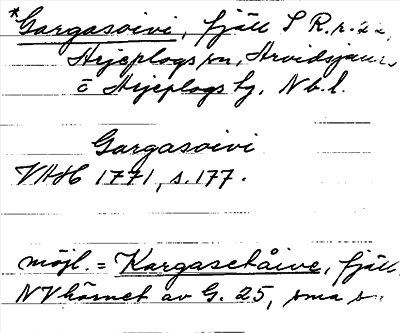 *Gargasoivi, fjäll S R.r. 22,
Arjeplogs sn, Arvidsjaurs
o Arjeplogs tg, Nb. l.
Gargasoivi
VAH 1771, s. 177.
möjl. = Kargasetåive, fjäll
NV hörnet av G. 25, sma s.